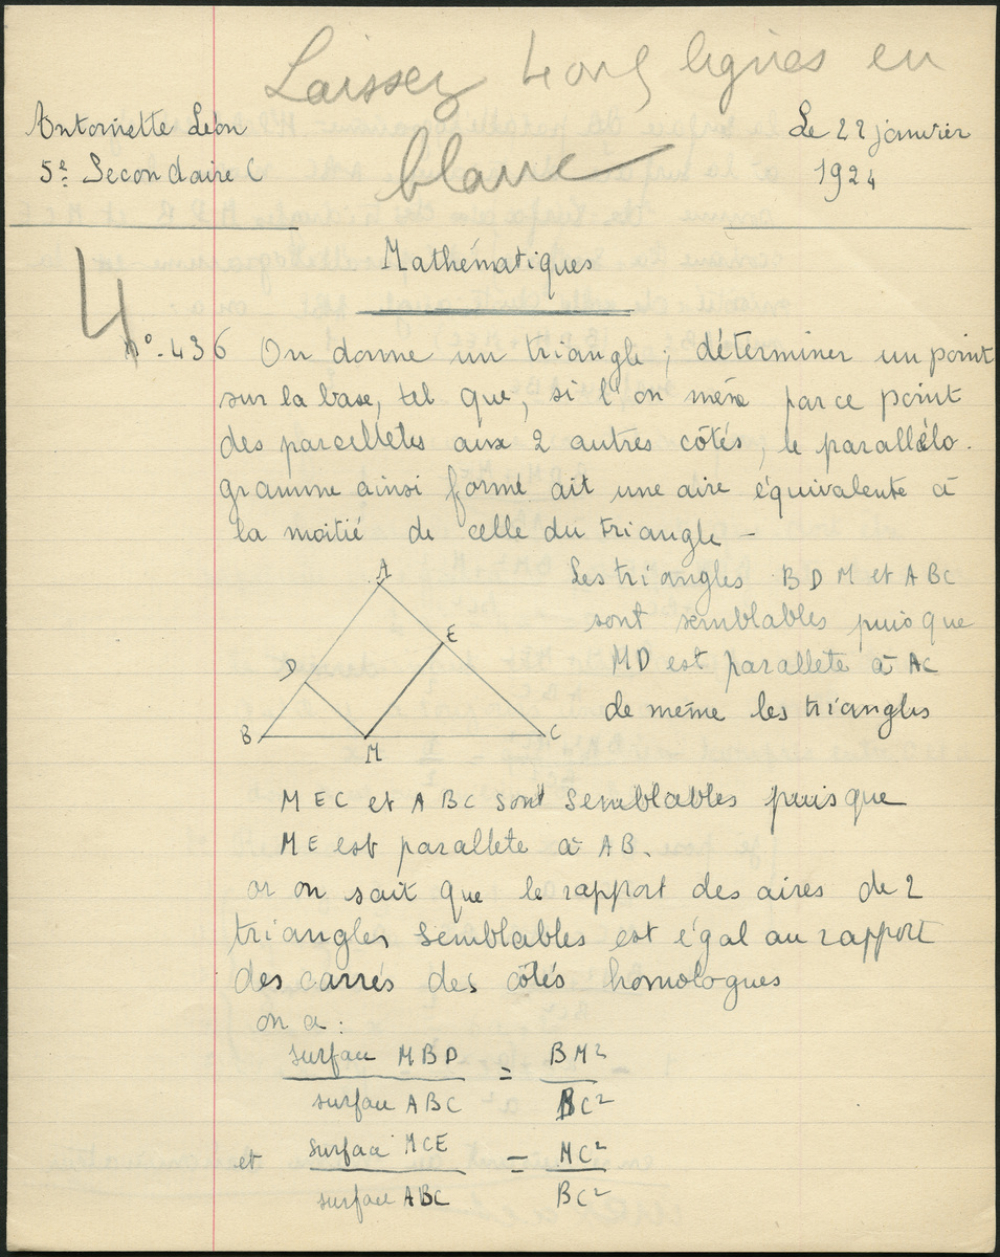 Laissez 4 ou 5 lignes en
blanc
Antoinette Léon
5e Secondaire C
Le 22 janvier
1924
Mathématiques
4
No. 436 On donne un triangle ; déterminer un point
sur la base, tel que, si l'on mène par ce point
des parcelletes aux 2 autres côtés, le parallélo-
gramme ainsi formé ait une aire équivalente à
la moitié de celle du triangle -
A
E
D
B
M
C
Les triangles BDM et ABC
sont semblables puisque
MD est parallete à AC
de même les triangles
MEC et ABC sont semblables puisque
ME est parallete à AB.
or on sait que le rapport des aires de 2
triangles semblables est égal au rapport
des carrés des côtés homologues
on a :
surface MBD = BM²
surface ABC BC²
et surface MCE = MC²
surface ABC BC²